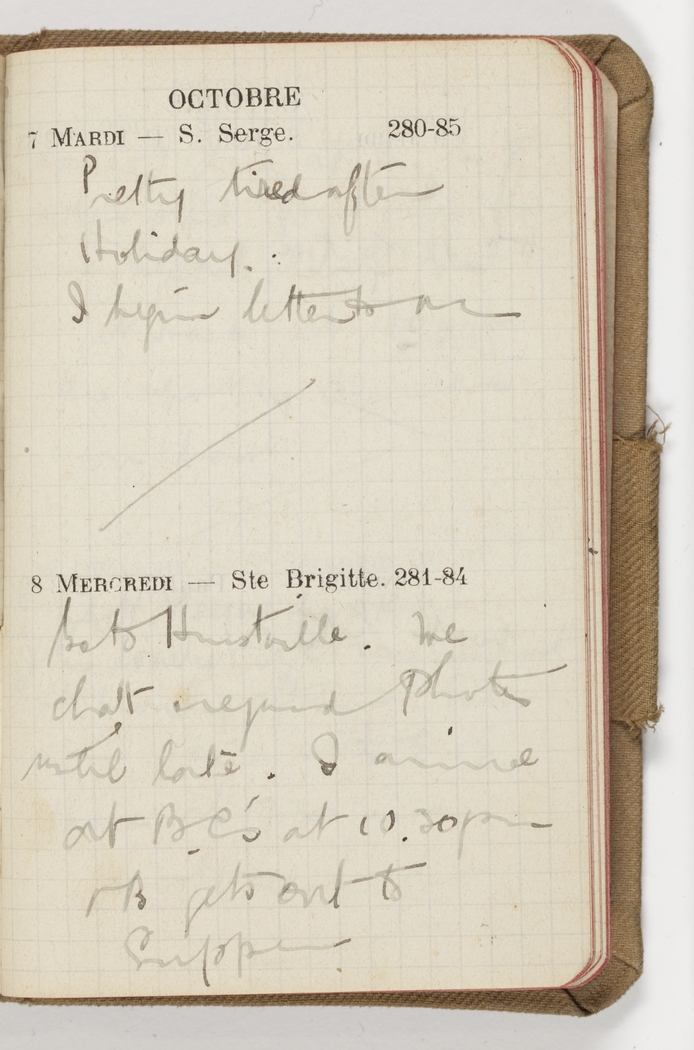 OCTOBRE
7 MARDI — S. Serge. 280-85
Pretty tired after
Holiday.
I begin letter to
8 MERCREDI — Ste Brigitte. 281-84
to Hurstville. We
chat regard Photos
until late. I arrive
at B.C's at 10.30pm
& B gets out to
Supper